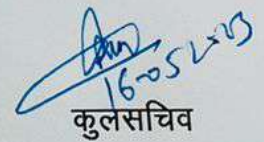 16-05-2023
कुलसचिव